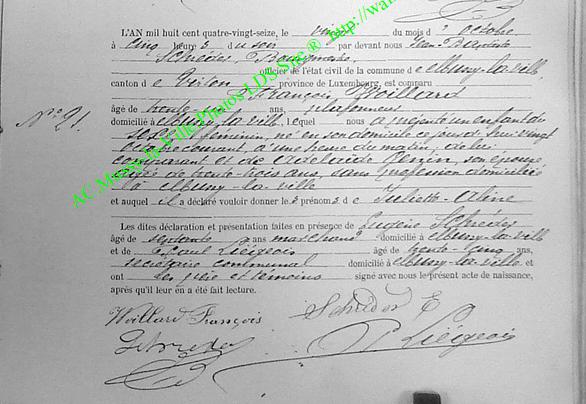 L'AN mil huit cent quatre-vingt-seize, le vingt du mois d'octobre
à cinq heures du soir par devant nous Jean Baptiste
Schréder, Bourgmestre
officier de l'état civil de la commune de Mussy-la-ville,
canton de Virton province de Luxembourg, est comparu
François Woillard
âgé de trente ans, plafonneur
domicilié à Mussy-la-ville, lequel nous a présenté un enfant du
sexe féminin né en son domicile ce jourd'hui vingt
octobre courant, à une heure du matin, de lui
comparant et de Adelaïde Perin, son épouse
âgée de trente-trois ans, sans profession domiciliée
à Mussy-la-ville
et auquel il a déclaré vouloir donner les prénoms de Juliette-Aline
Les dites déclaration et présentation faites en présence de Eugène Schréder
âgé de septante ans marchand domicilié à Mussy-la-ville
et de Paul Liégeois âgé de trente-cinq ans,
secrétaire communal domicilié à Mussy-la-ville et
ont les père et témoins signé avec nous le présent acte de naissance,
après qu'il leur en a été fait lecture.
Woillard François
Schréder E
P Liégeois
N° 21.
AC Mussy-la-Ville Photos LDS Site ® http://wa